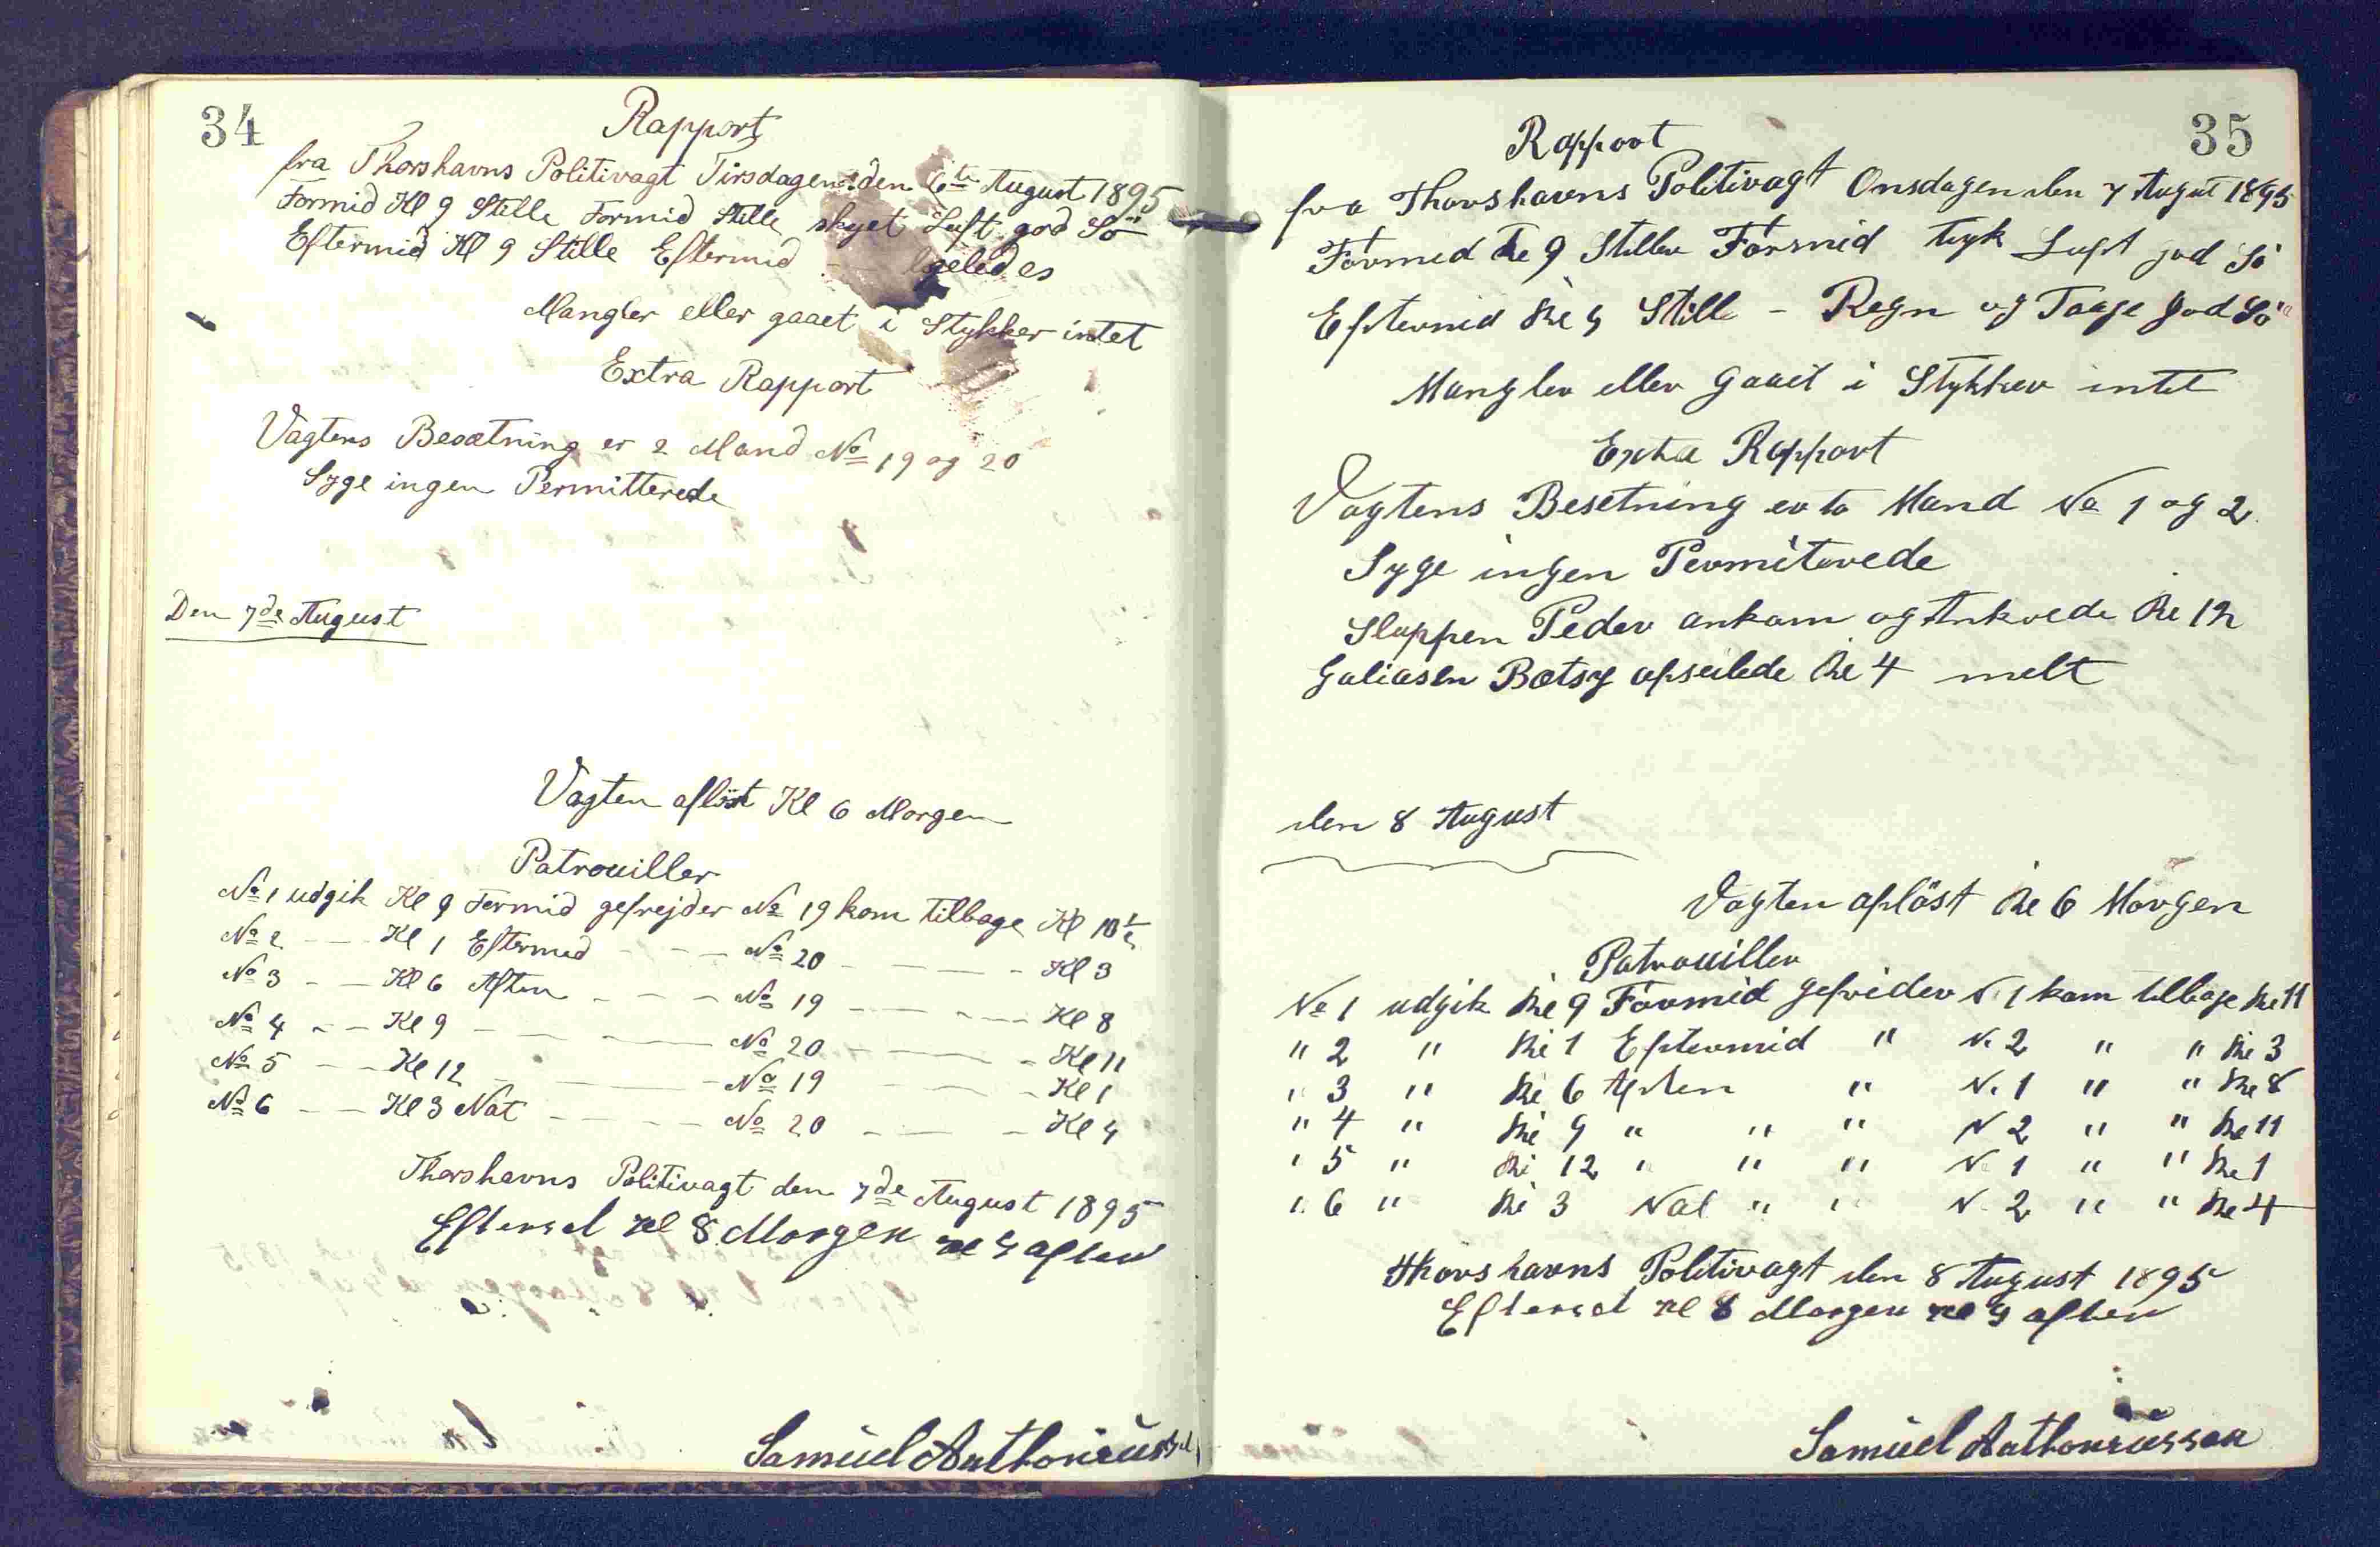 34
Rapport
fra Thorshavns Politivagt Tirsdagen den 6te August 1895
Formid Kl 9 Stille Formid Stille skyet Luft god Sö
Eftermid Kl 9 Stille Eftermid - - ligeledes
Mangler eller gaaet i Stykker intet
Extra Rapport
Vagtens Besætning er 2 Mand No 19 og 20
Syge ingen Permitterede
Den 7de August
Vagten aflöst Kl 6 Morgen
Patrouiller
No 1 udgik Kl 9 Formid gefrejder No 19 kom tilbage Kl 10½
No 2 - - Kl 1 Eftermed - - - No 20 - - - - Kl 3
No 3 - - Kl 6 Aften - - - No 19 - - - - Kl 8
No 4 - - Kl 9 - - - - No 20 - - - - Kl 11
No 5 - - Kl 12 - - - - No 19 - - - Kl 1
No 6 - - Kl 3 Nat - - - - No 20 - - - Kl 4
Thorshavns Politivagt den 7de August 1895
Efterset Kl 8 Morgen Kl 9 aften
Samuel Anthoniussen
35
Rapport
fra Thorshavns Politivagt Onsdagen den 7 August 1895
Formid Kl 9 Stille Formid tyk Luft god Sö
Eftermid Kl 9 Still - Regn og Taage god Sö
Mangler eller Gaaet i Stykker intet
Extra Rapport
Vagtens Besetning er to Mand No 1 og 2
Syge ingen Permiterede
Sluppen Peder ankom og Ankrede Kl 12
Galiasen Betsy afseilede Kl 4
den 8 August
Vagten aflöst Kl 6 Morgen
Patrouiller
No 1 udgik Kl 9 Formid gefrider N. 1 kom tilbage Kl 11
" 2 " Kl 1 Eftermid " N. 2 " " Kl 3
" 3 " Kl 6 Aften " N. 1 " " Kl 8
" 4 " Kl 9 " " " N 2 " " Kl 11
" 5 " Kl 12 " " " N. 1 " " Kl 1
" 6 " Kl 3 Nat " " N. 2 " " Kl 4
Thorshavns Politivagt den 8 August 1895
Efterset Kl 8 Morgen Kl 9 aften
Samuel Anthoniussen